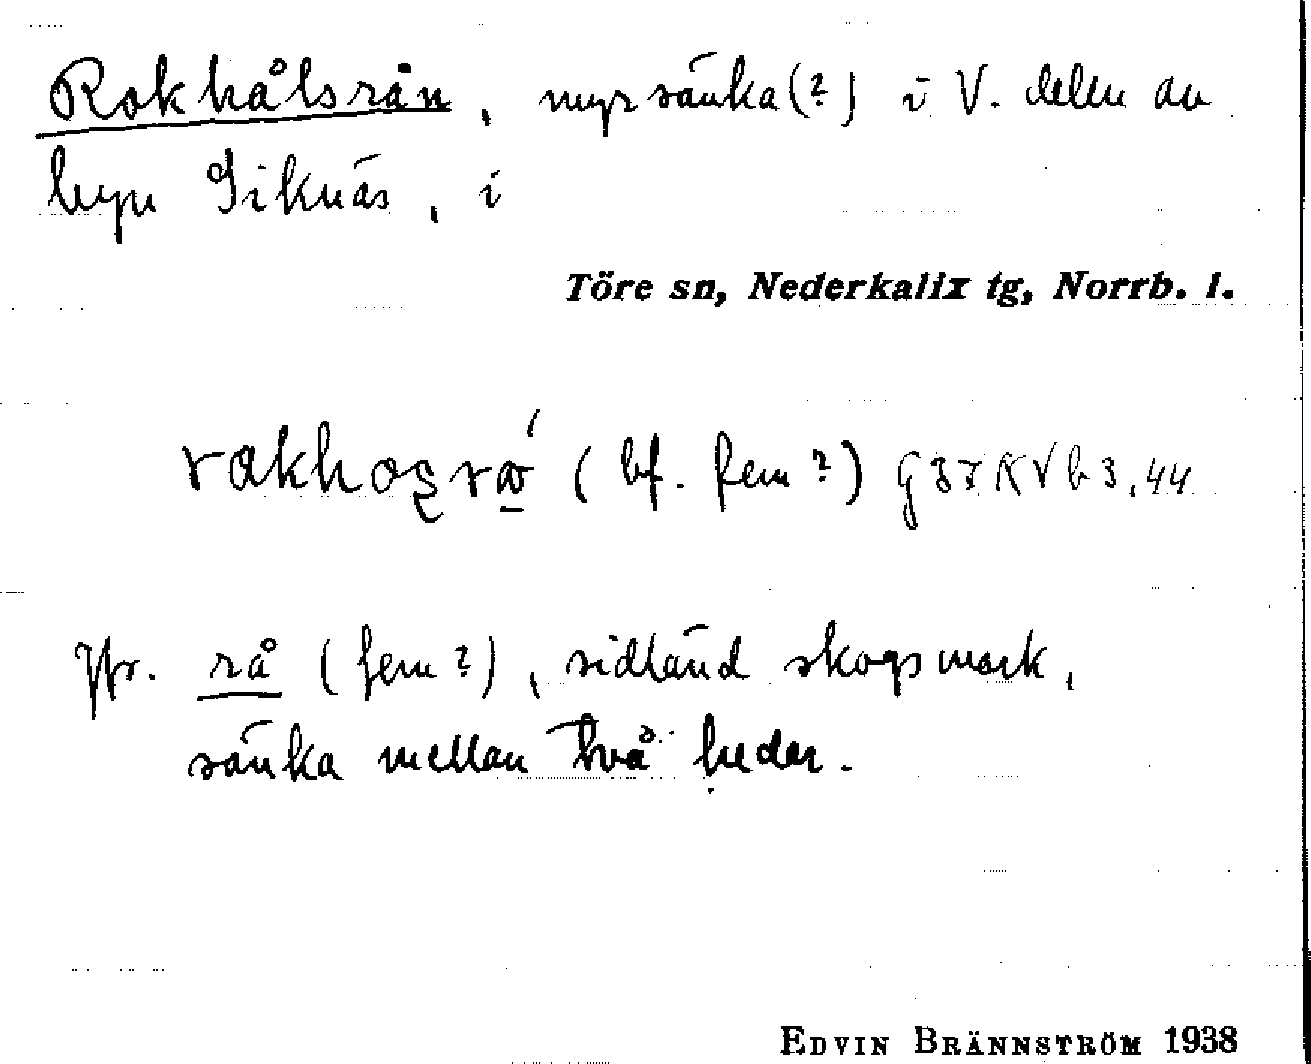 Rokhålsrån, myrsänka(?) i V. delen av
byn Siknäs, i
Töre sn, Nederkalix tg, Norrb. l.
(bf. fem?)
Jfr. rå (fem?), sidländ skogsmark,
sänka mellan två heder.
EDVIN BRÄNNSTRÖM 1938